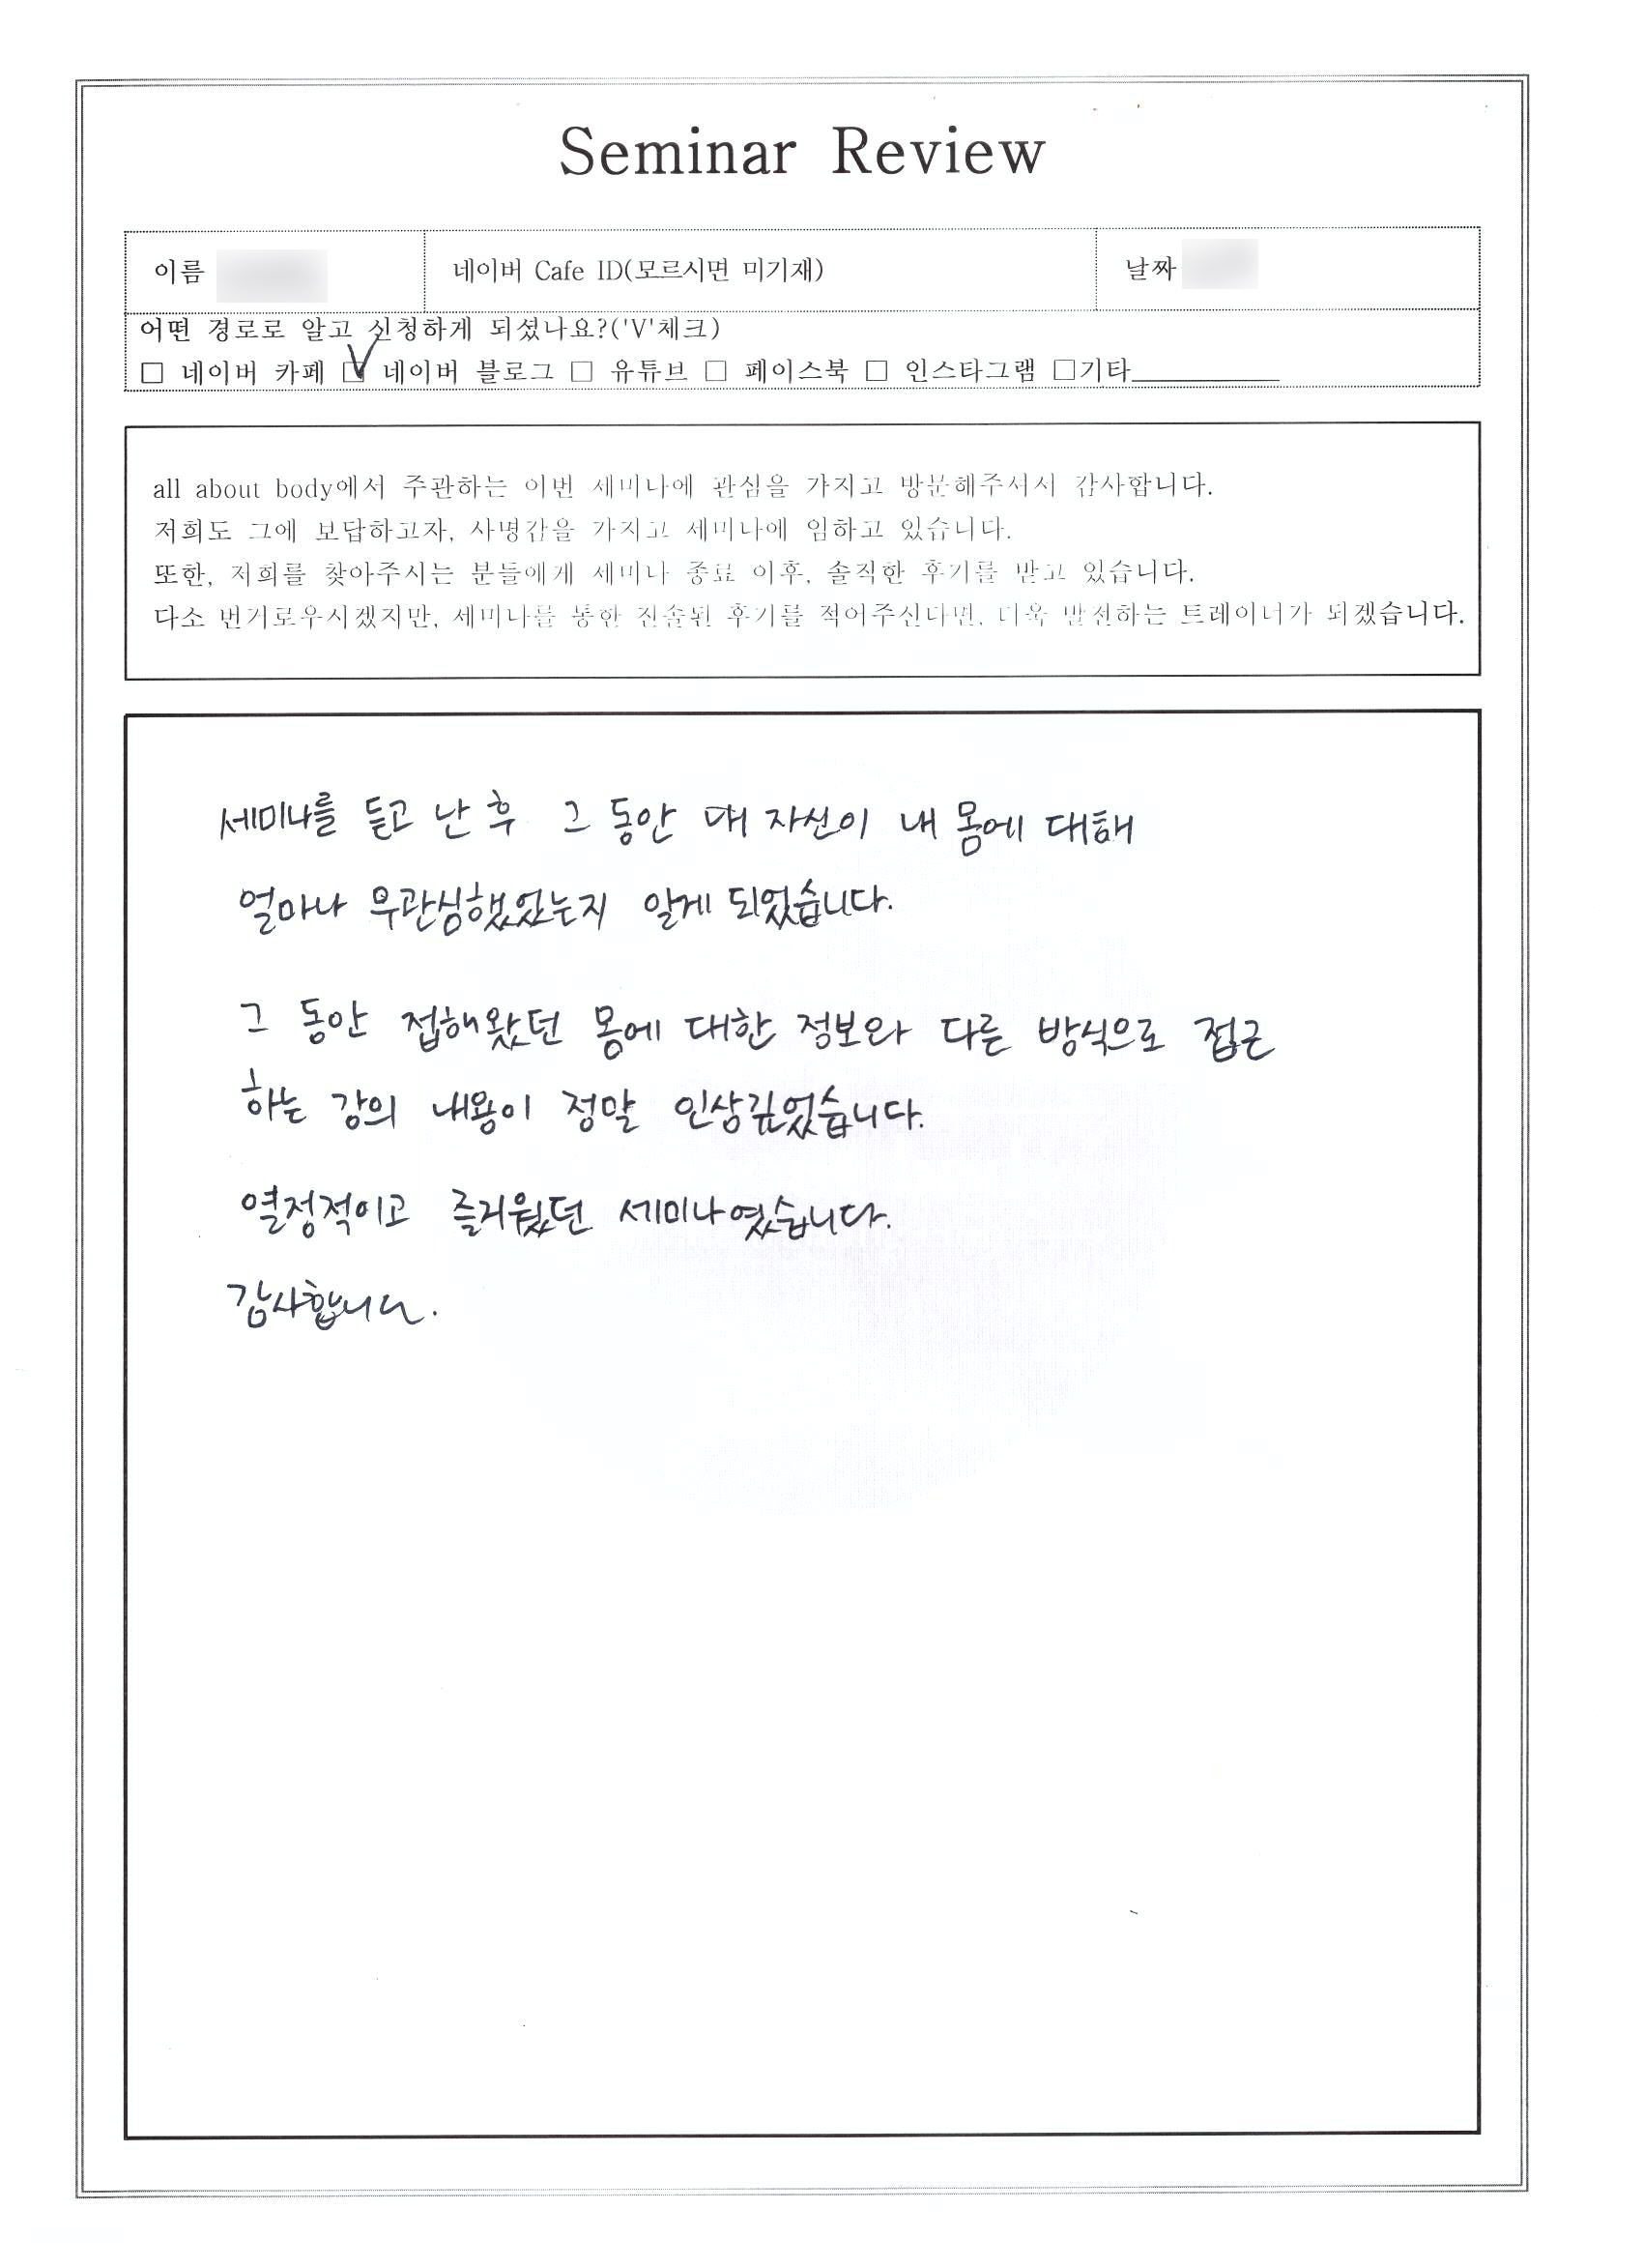 Seminar Review
이름 네이버 Cafe ID(모르시면 미기재) 날짜
어떤 경로로 알고 신청하게 되셨나요?('V'체크)
□ 네이버 카페 ☑ 네이버 블로그 □ 유튜브 □ 페이스북 □ 인스타그램 □기타
all about body에서 주관하는 이번 세미나에 관심을 가지고 방문해주셔서 감사합니다.
저희도 그에 보답하고자, 사명감을 가지고 세미나에 임하고 있습니다.
또한, 저희를 찾아주시는 분들에게 세미나 종료 이후, 솔직한 후기를 받고 있습니다.
다소 번거로우시겠지만, 세미나를 통한 진솔된 후기를 적어주신다면, 더욱 발전하는 트레이너가 되겠습니다.
세미나를 듣고 난 후 그 동안 내 자신이 내 몸에 대해
얼마나 무관심했었는지 알게 되었습니다.
그 동안 접해왔던 몸에 대한 정보와 다른 방식으로 접근
하는 강의 내용이 정말 인상깊었습니다.
열정적이고 즐거웠던 세미나였습니다.
감사합니다.